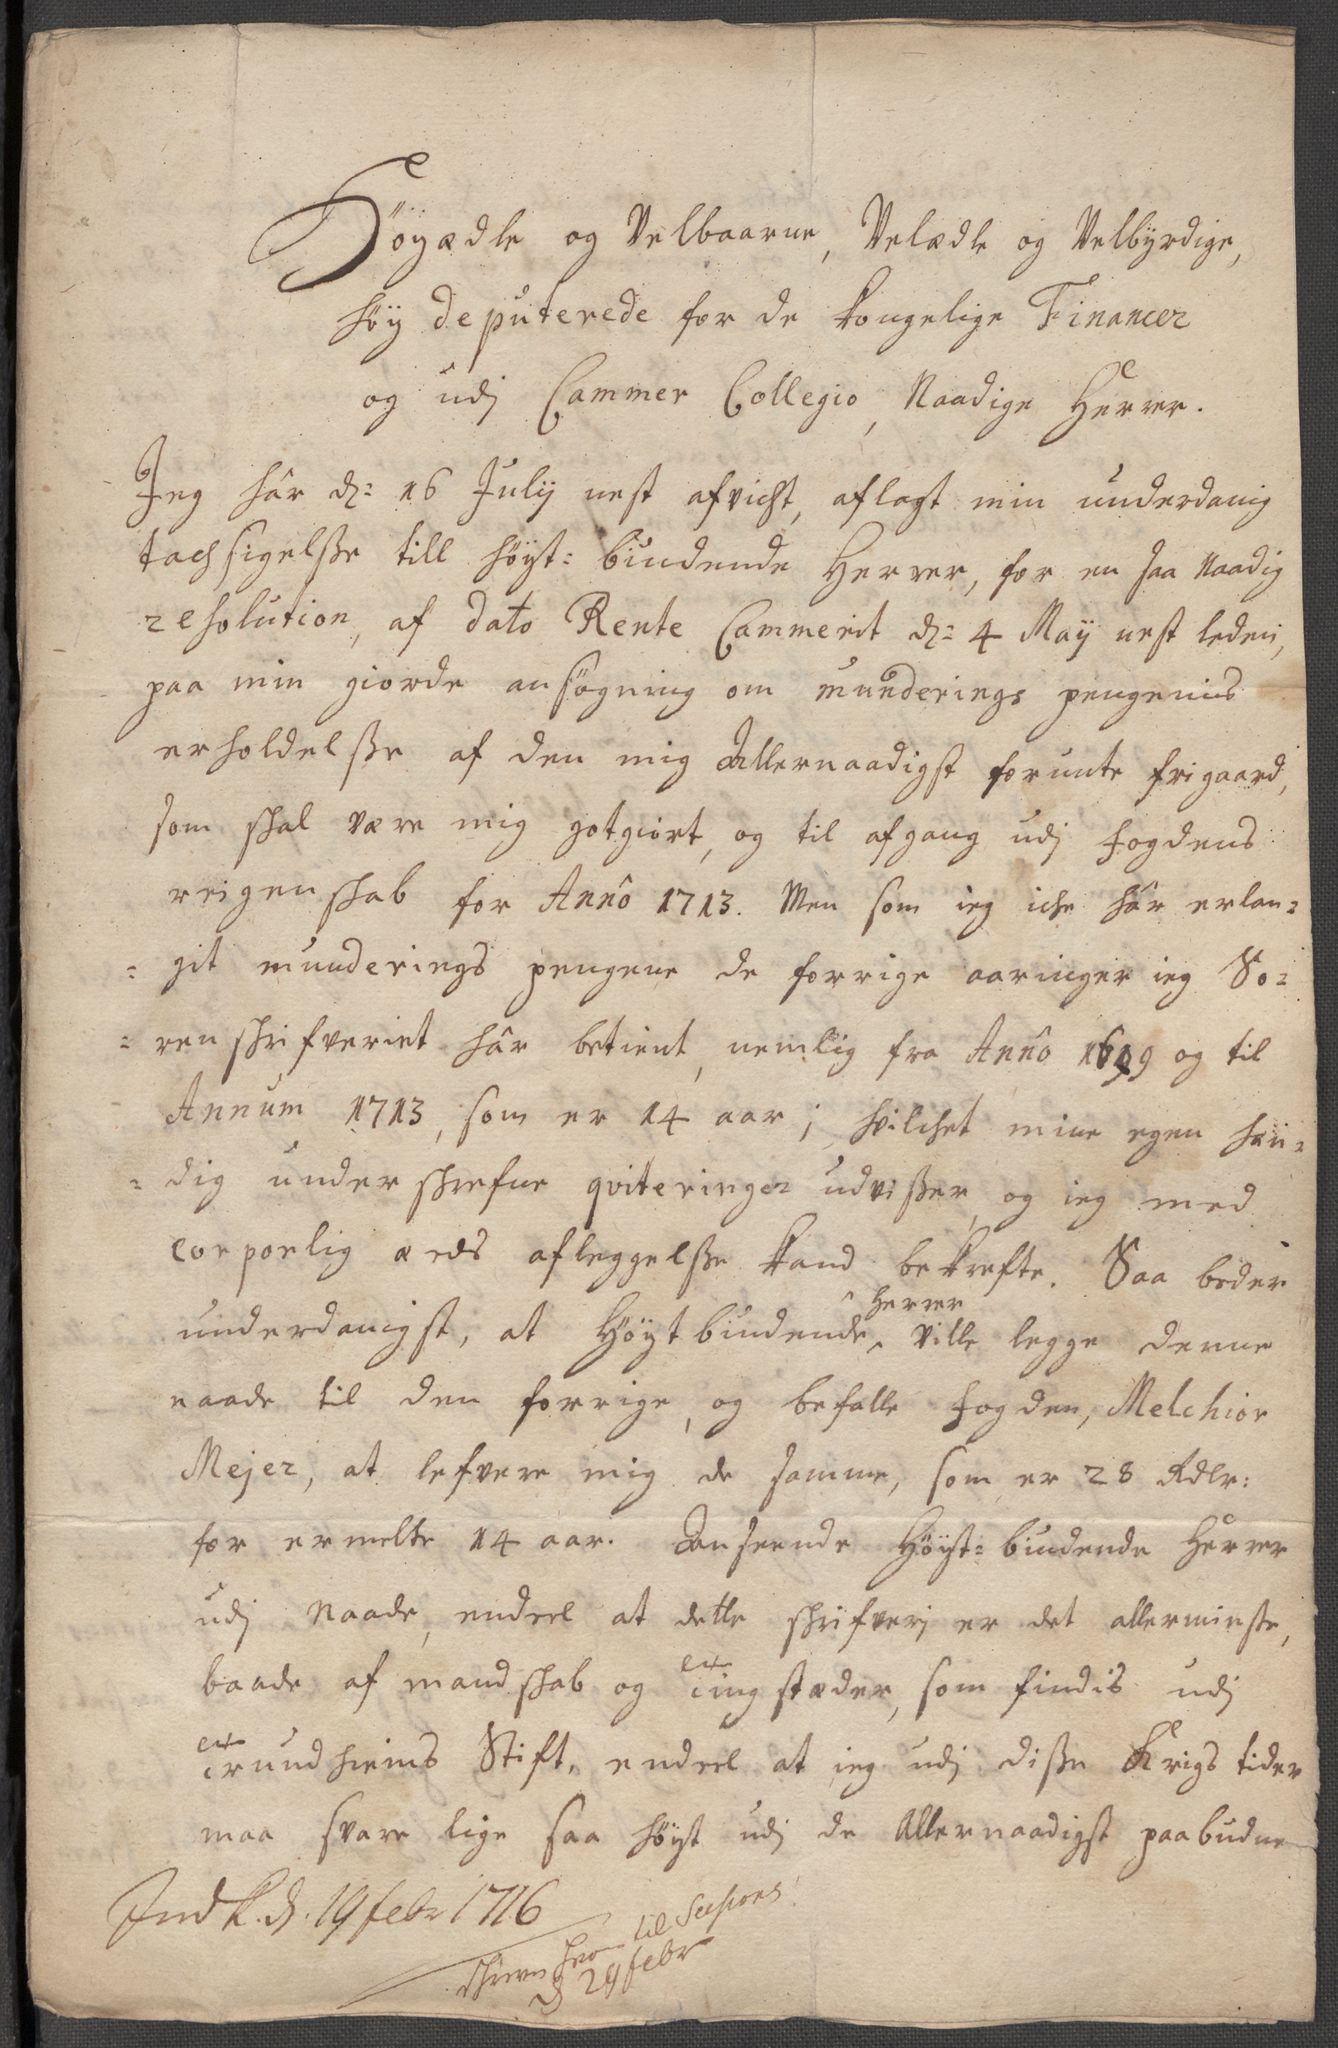 Höyædle og Velbaarne, Velædle og Velbÿrdige,
höy deputerede for de kongelige Financer
og udj Cammer Collegio, Naadige Herrer.
Jeg hâr d: 16 Julij nest afvicht, aflagt min underdanig
tachsigelsse till höyst=biudende Herrer, for en saa naadig
resolution, af dato Rente Cammerit d: 4 Maij nest leden,
paa min giorde ansögning om munderings pengenis
erholdelsse af den mig Allernaadigst forunte frigaard,
som skal være mig gotgiort, og til afgang udj fogdens
reigenskab for Annô 1713. Men som ieg iche hâr erlan=
=git munderings pengene de forrige aaringer ieg So=
=renskrifveriet hâr betient, nemlig fra Annô 1699 og til
Annum 1713, som er 14 aar; hvilchet mine egen hæn=
=dig underskrefne qviteringer udvisser, og ieg med
corporlig æeds afleggelsse kand bekrefte. Saa beder
underdanigst, at Höyt biudende Herrer ville legge denne
naade til den forrige, og befalle fogden, Melchior
Mejer, at lefvere mig de samme, som er 28 Rdlr:
for ermelte 14 aar. Anseende Höyst=biudende Herrer
udj Naade, endeel at dette skrifverj er det allerminste,
baade af mandskab og tingstæder, som findis udj
trundhiems Stift, endeel at ieg udj disse Krigs tider
maa svare lige saa höyt udj de Allernaadigst paabudne
Ind k. d. 19 febr 1716
til Sessions
d 29 febr